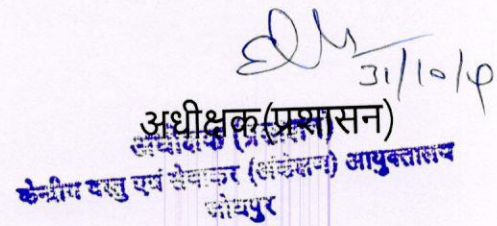 31/10/
अधीक्षक(प्रशासन)
अधीक्षक (प्रशासन)
केन्द्रीय वस्तु एवं सेवाकर (अंकेक्षण) आयुक्तालय
जोधपुर